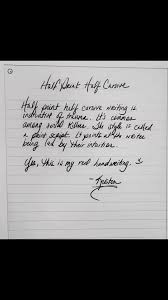 Half Print Half Cursive
Half print half cursive writing is
indicative of trauma. It's common
among serial killers. The style is called
a print script. It points at the writer
being led by their intuition.
Yes, this is my real handwriting.